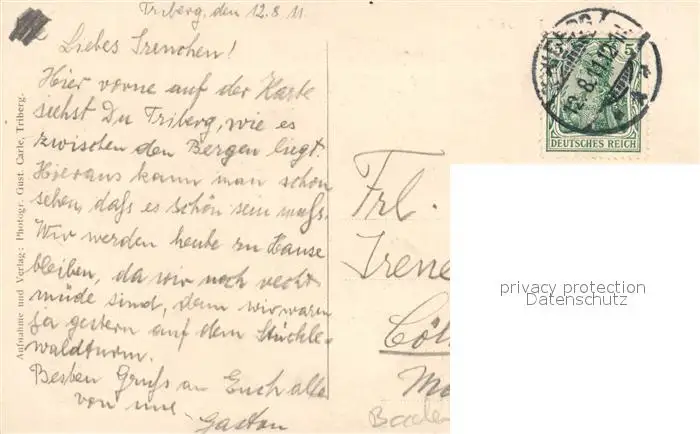 Triberg, den 12.8.11.
Liebes Irenchen!
Hier vorne auf der Karte
siehst Du Triberg, wie es
zwischen den Bergen liegt.
Hieraus kann man schon
sehen, daß es schön sein muß.
Wir werden heute zu Hause
bleiben, da wir noch recht
müde sind, denn wir waren
ja gestern auf dem Stöckle-
waldturm.
Besten Gruß an Euch alle
von uns
Gaston
Aufnahme und Verlag: Photogr. Gust. Carle, Triberg.
5
DEUTSCHES REICH
12.8.11.12-1
Frl.
Irene
Cöl
Baden
privacy protection
Datenschutz